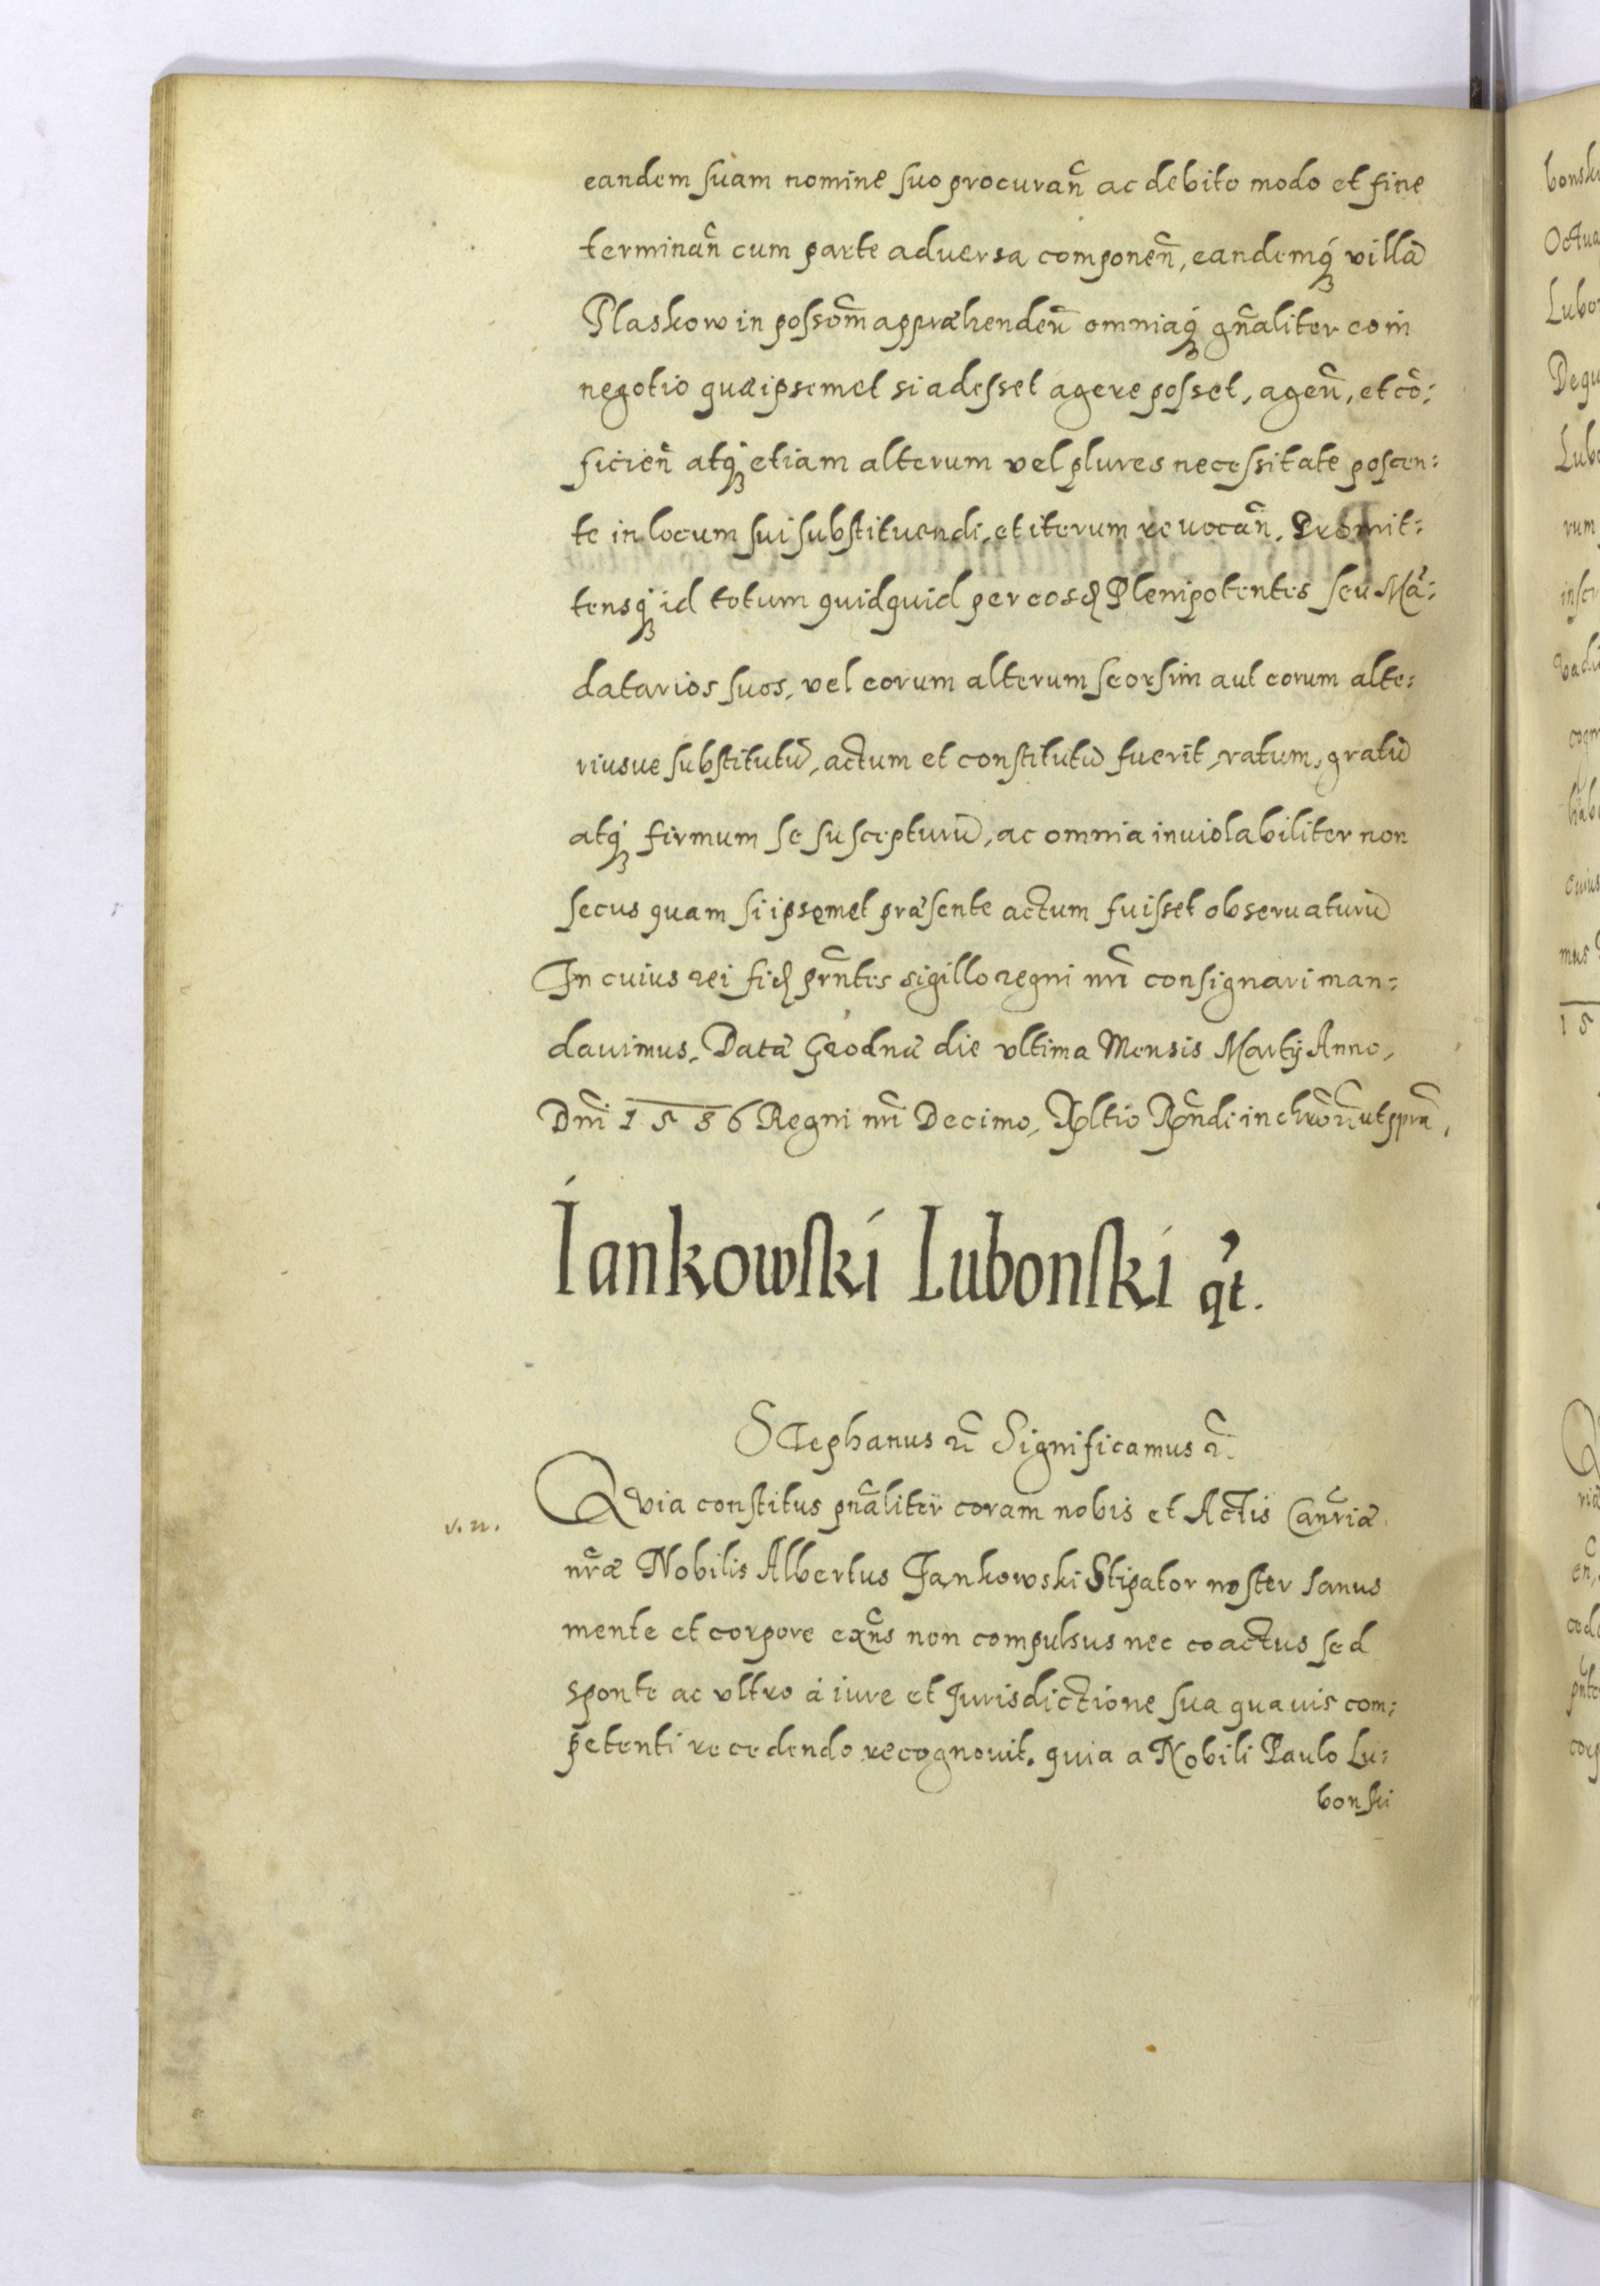 eandem suam nomine suo procuran̄ ac debito modo et fine
terminan̄ cum parte adversa componen̄, eandemq́ʒ villā
Plaskow in possom̄ appræhenden̄ omniaq́ʒ gn̄aliter eo in
negotio quæ ipsemet si adesset agere posset, agen̄, et cō:
ficien̄ atq́ʒ etiam alterum vel plures necessitate poscen:
te in locum sui substituendi, et iterum reuocan̄. Promit:
tensq́ʒ id totum quidquid per eosd Plenipotentes seu Mā:
datarios suos, vel eorum alterum seorsim aut eorum alte:
riusue substitutū, actum et constitutū fuerit, ratum, gratū
atq́ʒ firmum se suscepturū, ac omnia inuiolabiliter non
secus quam si ipsemet præsente actum fuisset obseruaturū
In cuius rei fid pr̄ntis sigillo regni nr̄i consignari man:
dauimus. Datā Grodnæ die vltima Mensis Martij Anno,
Dn̄i 1586 Regni nr̄i Decimo, Rltio Rn̄di in chr̄o ut spra,
Iankowski Lubonski qt.
Stephanus rc̄ Significamus rc̄.
v. n.
Quia constitus pn̄aliter coram nobis et Actis Canr̄iæ
nr̄æ Nobilis Albertus Jankowski Stipator noster sanus
mente et corpore exn̄s non compulsus nec coactus sed
sponte ac vltro à iure et Jurisdictione sua quauis com:
petenti recedendo recognouit. quia a Nobili Paulo Lu:
bonski